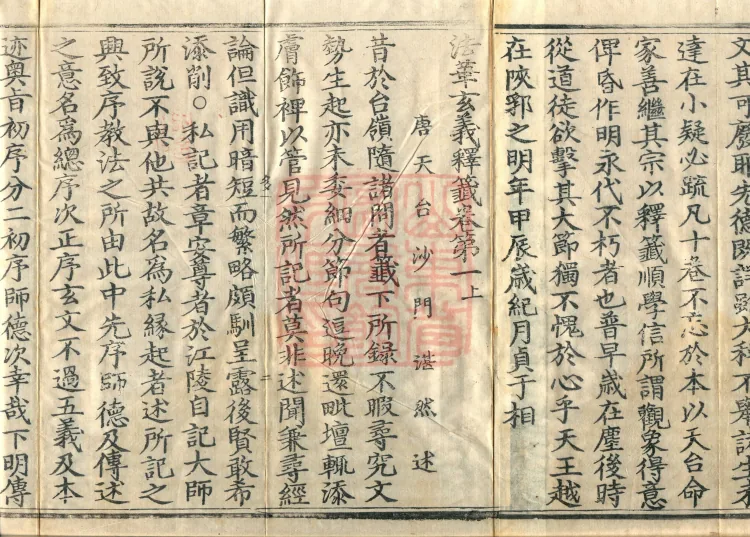 文其可廢耶先德既詳
達在小疑必疏凡十卷不忘於本以天台命
家善繼其宗以釋籤順學信所謂觀象得意
俾昏作明永代不朽者也普早歲在塵後時
從道徒欲擊其大節獨不愧於心乎天王越
在陝郛之明年甲辰歲紀月貞于相
法華玄義釋籤卷第一上
唐天台沙門湛然述
昔於台嶺隨諸問者籤下所録不暇尋究文
勢生起亦未委細分節句逗晚還毗壇輒添
膚飾裨以管見然所記者莫非述聞兼尋經
論但識用暗短而繁略頗馴呈露後賢敢希
添削○私記者章安尊者於江陵自記大師
所說不與他共故名爲私緣起者述所記之
興致序教法之所由此中先序師德及傳述
之意名爲總序次正序玄文不過五義及本
迹奥旨初序分二初序師德次幸哉下明傳